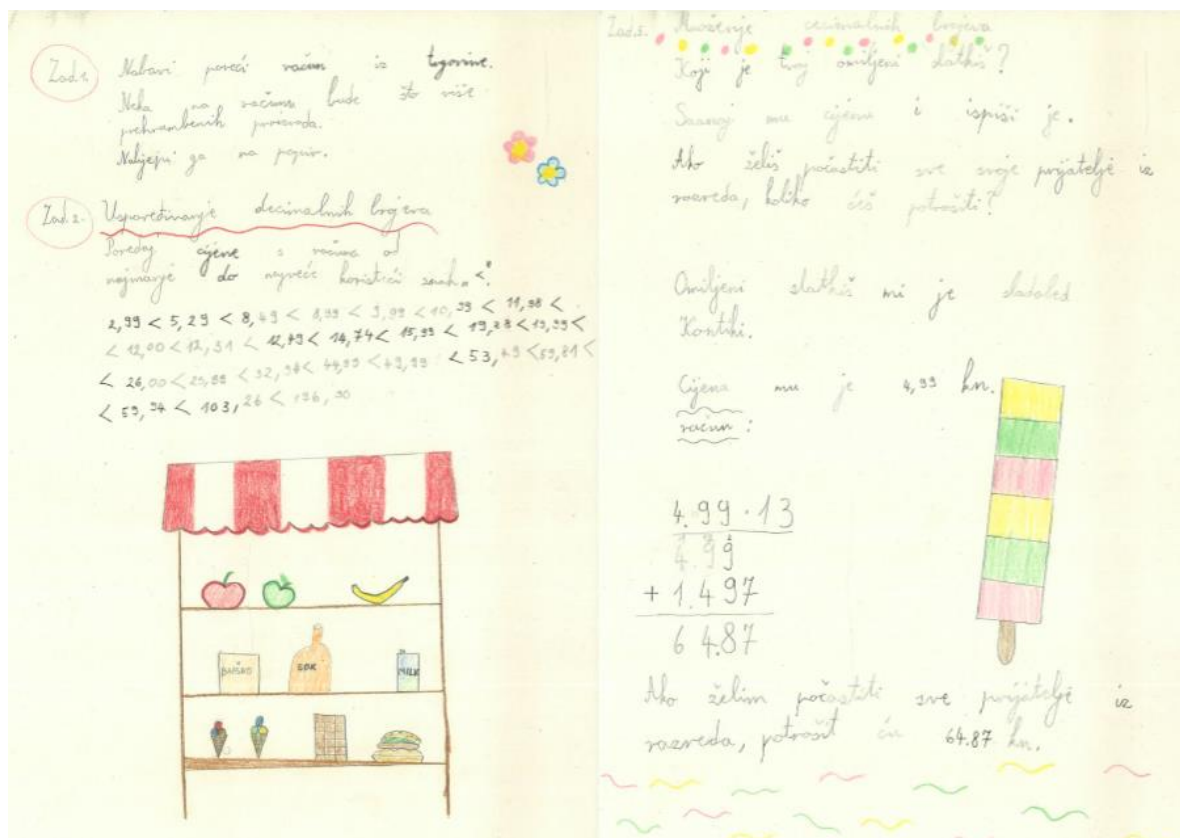 Zad.1.
Nabavi poveći račun iz trgovine.
Neka na računu bude što više
prehrambenih proizvoda.
Nalijepi ga na papir.
Zad.2. Uspoređivanje decimalnih brojeva
Poredaj cijene s računa od
najmanje do najveće koristeći znak „<“.
2,99 < 5,29 < 8,49 < 8,99 < 9,99 < 10,99 < 11,98 <
< 12,00 < 12,51 < 12,49 < 14,74 < 15,99 < 19,28 < 19,99 <
< 26,00 < 29,88 < 32,94 < 44,99 < 49,99 < 53,49 < 59,81 <
< 59,94 < 103,26 < 196,90
BAMBO
SOK
MILK
Zad.5. Množenje decimalnih brojeva
Koji je tvoj omiljeni slatkiš?
Saznaj mu cijenu i ispiši je.
Ako želiš počastiti sve svoje prijatelje iz
razreda, koliko ćeš potrošiti?
Omiljeni slatkiš mi je sladoled
Kontiki.
Cijena mu je 4,99 kn.
račun :
4.99 · 13
4 9 9
+ 1.497
64.87
Ako želim počastiti sve prijatelje iz
razreda, potrošit ću 64.87 kn.